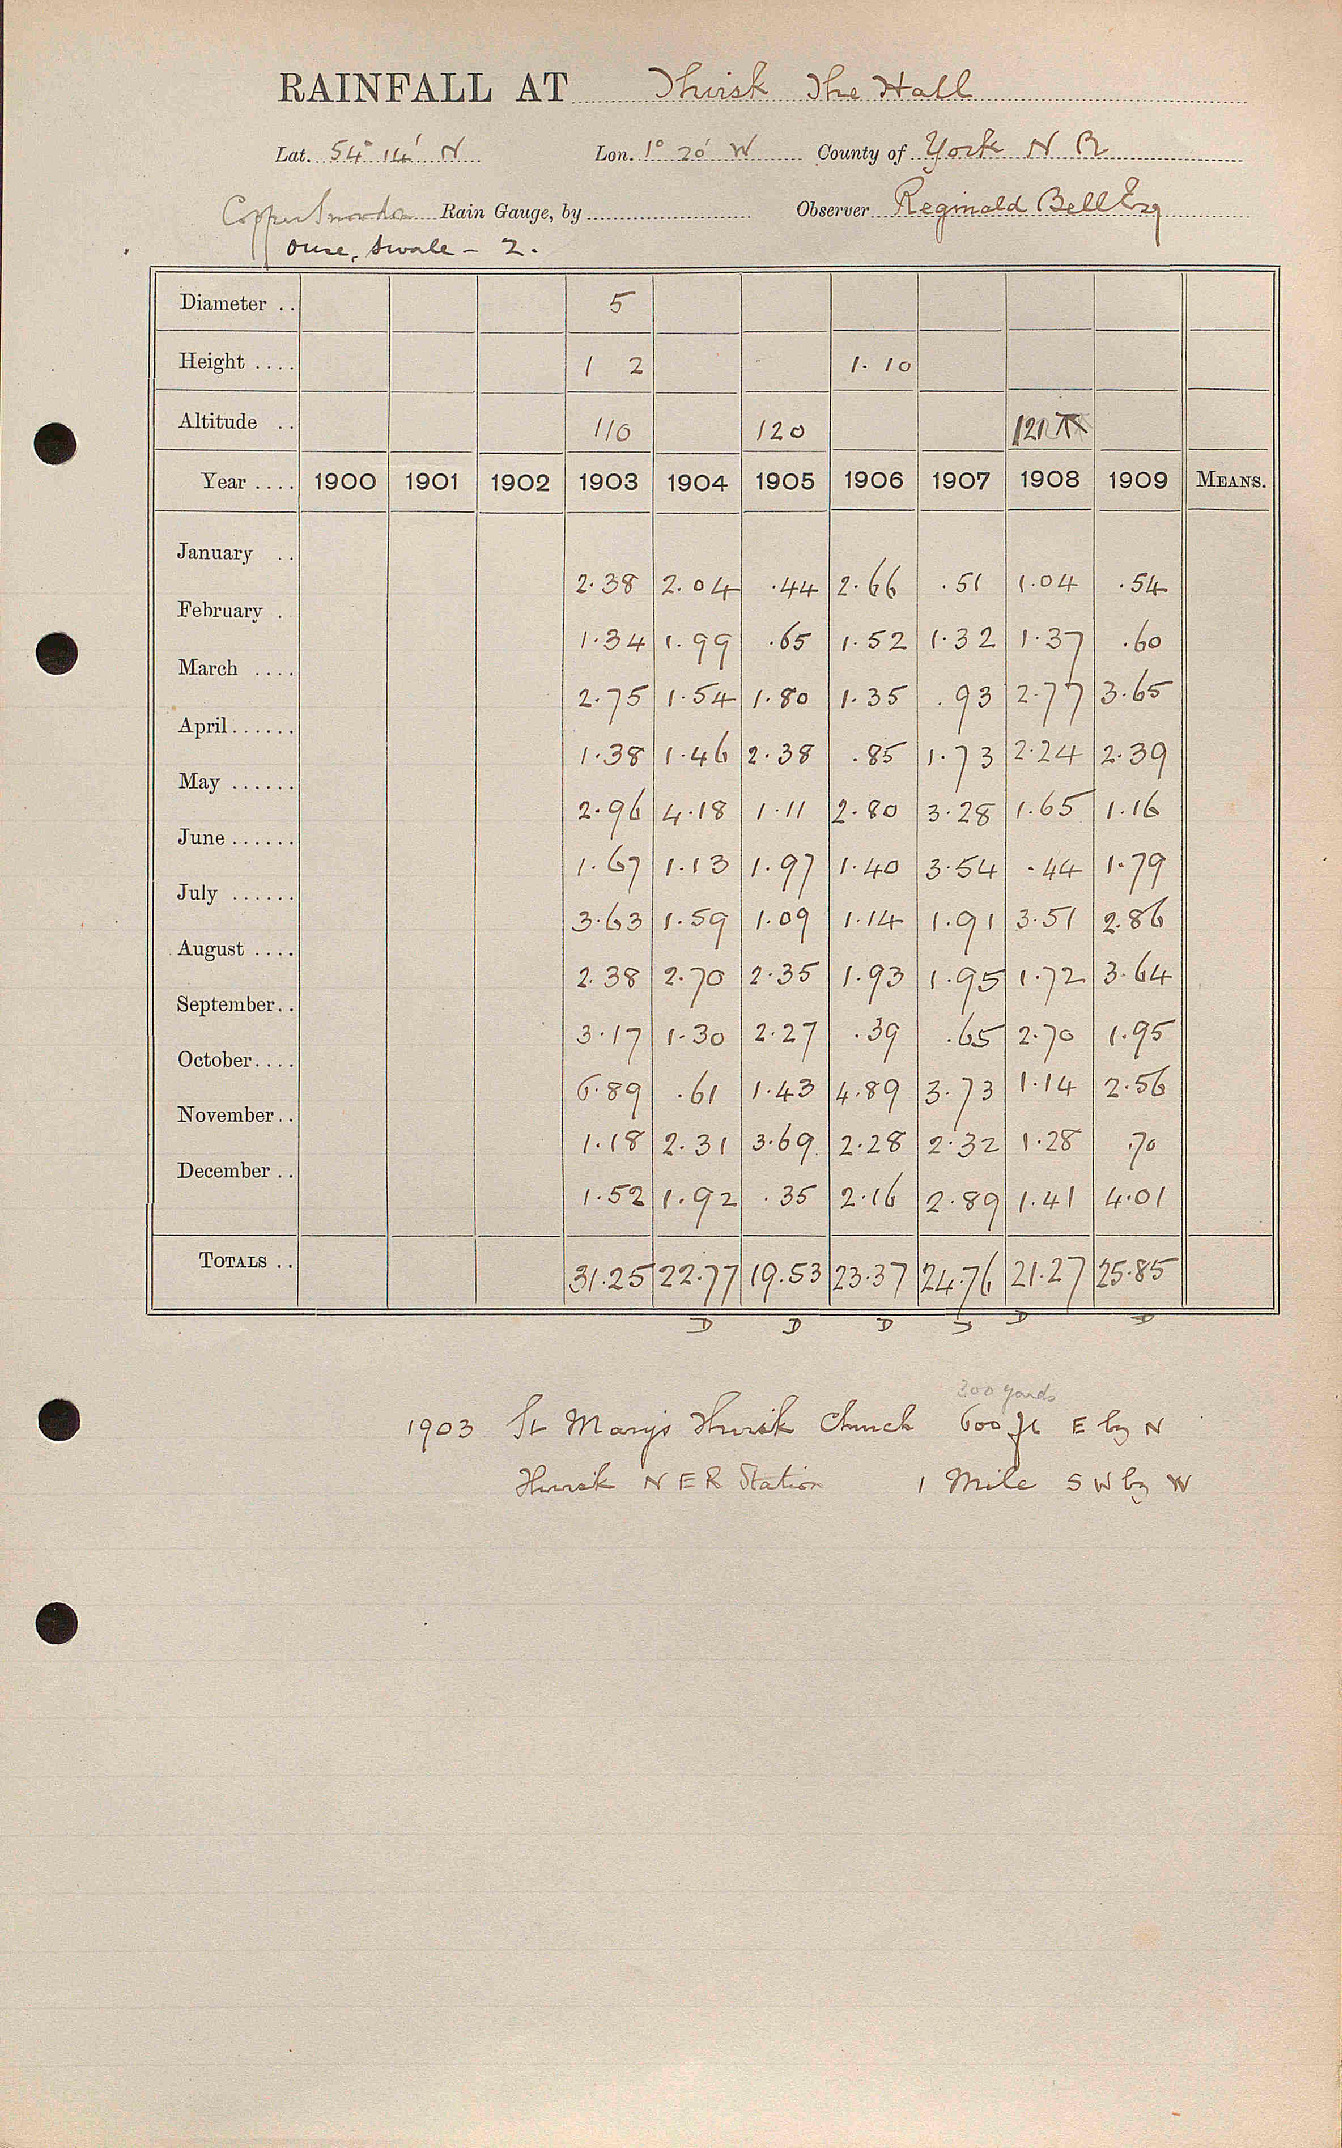 RAINFALL AT Thirsk The Hall
Lat. 54° 14' N Lon. 1° 20' W County of York N R
Copper Snowdon Rain Gauge, by Observer Reginald Bell Esq
Ouse, Swale - 2.
Diameter .. 5
Height .... 1 2 1. 10
Altitude .. 110 120 121
Year .... 1900 1901 1902 1903 1904 1905 1906 1907 1908 1909 MEANS.
January .. 2.38 2.04 .44 2.66 .51 1.04 .54
February . 1.34 1.99 .65 1.52 1.32 1.37 .60
March .... 2.75 1.54 1.80 1.35 .93 2.77 3.65
April...... 1.38 1.46 2.38 .85 1.73 2.24 2.39
May ...... 2.96 4.18 1.11 2.80 3.28 1.65 1.16
June...... 1.67 1.13 1.97 1.40 3.54 .44 1.79
July ...... 3.63 1.59 1.09 1.14 1.91 3.51 2.86
August .... 2.38 2.70 2.35 1.93 1.95 1.72 3.64
September.. 3.17 1.30 2.27 .39 .65 2.70 1.95
October.... 6.89 .61 1.43 4.89 3.73 1.14 2.56
November.. 1.18 2.31 3.69 2.28 2.32 1.28 .70
December .. 1.52 1.92 .35 2.16 2.89 1.41 4.01
TOTALS .. 31.25 22.77 19.53 23.37 24.76 21.27 25.85
D D D D D D
200 yards
1903 St Marys Thirsk Church 600 ft E by N
Thirsk N E R Station 1 Mile S W by W